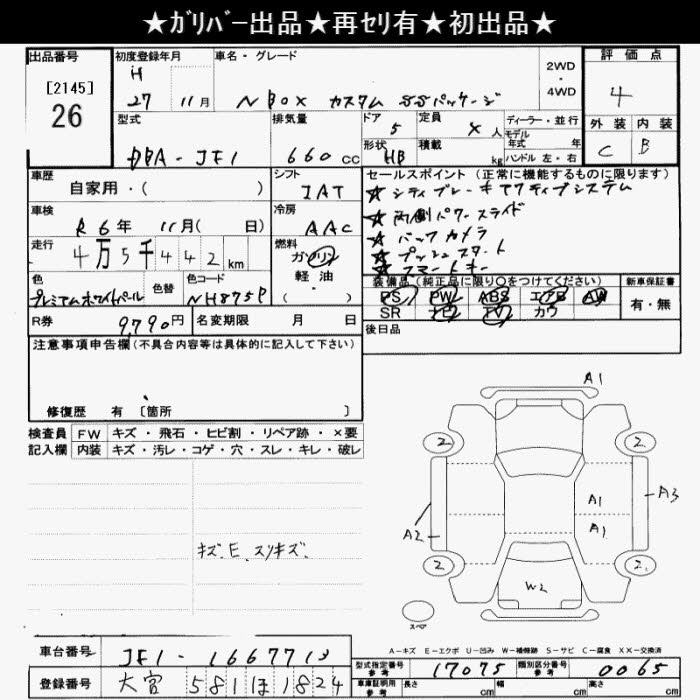 ★ｶﾞﾘﾊﾞｰ出品★再ｾﾘ有★初出品★
出品番号 初度登録年月 車名・グレード 評価点
[2145] H 2WD
26 27 11月 N BOX カスタム SSパッケージ ・ 4
4WD
型式 排気量 ドア 定員 ディーラー・並行 外装 内装
5 人 モデル年式 年
DBA-JF1 660cc 形状 HB 積載 kg ハンドル 左・右 C B
車歴 シフト セールスポイント(正常に機能するものに限ります)
自家用・( ) IAT ★シティブレーキアクティブシステム
車検 冷房 ★両側パワースライド
R6年 11月( 日) AAC ★バックカメラ
走行 4万5千442km 燃料 ★プッシュスタート
ガソリン ★スマートキー
色 色替 色コード 軽油・ 装備品(純正品に限り○をつけてください) 新車保証書
プレミアムホワイトパール NH875P ( ) PS PW ABS エアB AW 有・無
R券 9790円 名変期限 月 日 SR ナビ TV カワ
後日品
注意事項申告欄(不具合内容等は具体的に記入して下さい)
修復歴 有 [箇所 ]
検査員 FW キズ・飛石・ヒビ割・リペア跡・×要
記入欄 内装 キズ・汚レ・コゲ・穴・スレ・キレ・破レ
キズ.E.スリキズ.
A1
2 2.
A1 A3
A2 A1
2 2.
W2
スペア
A-キズ E-エクボ U-凹み W-補修跡 S-サビ C-腐食 XX-交換済
車台番号 JF1-1667713
型式指定番号 参考 17075 類別区分番号 参考 0065
登録番号 大宮 581 ほ 1824
車庫証明用 参考 長さ cm 幅 cm 高さ cm